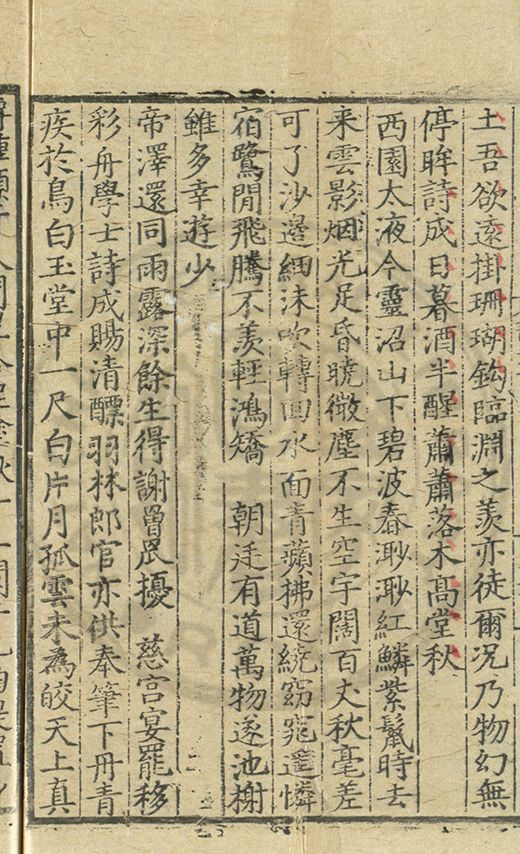 土吾欲遠掛珊瑚鈎臨淵之羨亦徒爾况乃物幻無
停眸詩成日暮酒半醒蕭蕭落木髙堂秋
西園太液今靈沼山下碧波春渺渺紅鱗紫鬣時去
来雲影烟光足昏曉微塵不生空宇闊百丈秋毫差
可了沙邉細沫吹轉回水面青蘋拂還繞窈窕遥憐
宿鷺閒飛騰不羡輕鴻矯　朝廷有道萬物遂池榭
雖多幸遊少
帝澤還同雨露深餘生得謝罾罠擾　慈宮宴罷移
彩舟學士詩成賜清醥羽林郎官亦供奉筆下丹青
疾於鳥白玉堂中一尺白片月孤雲未為皎天上真